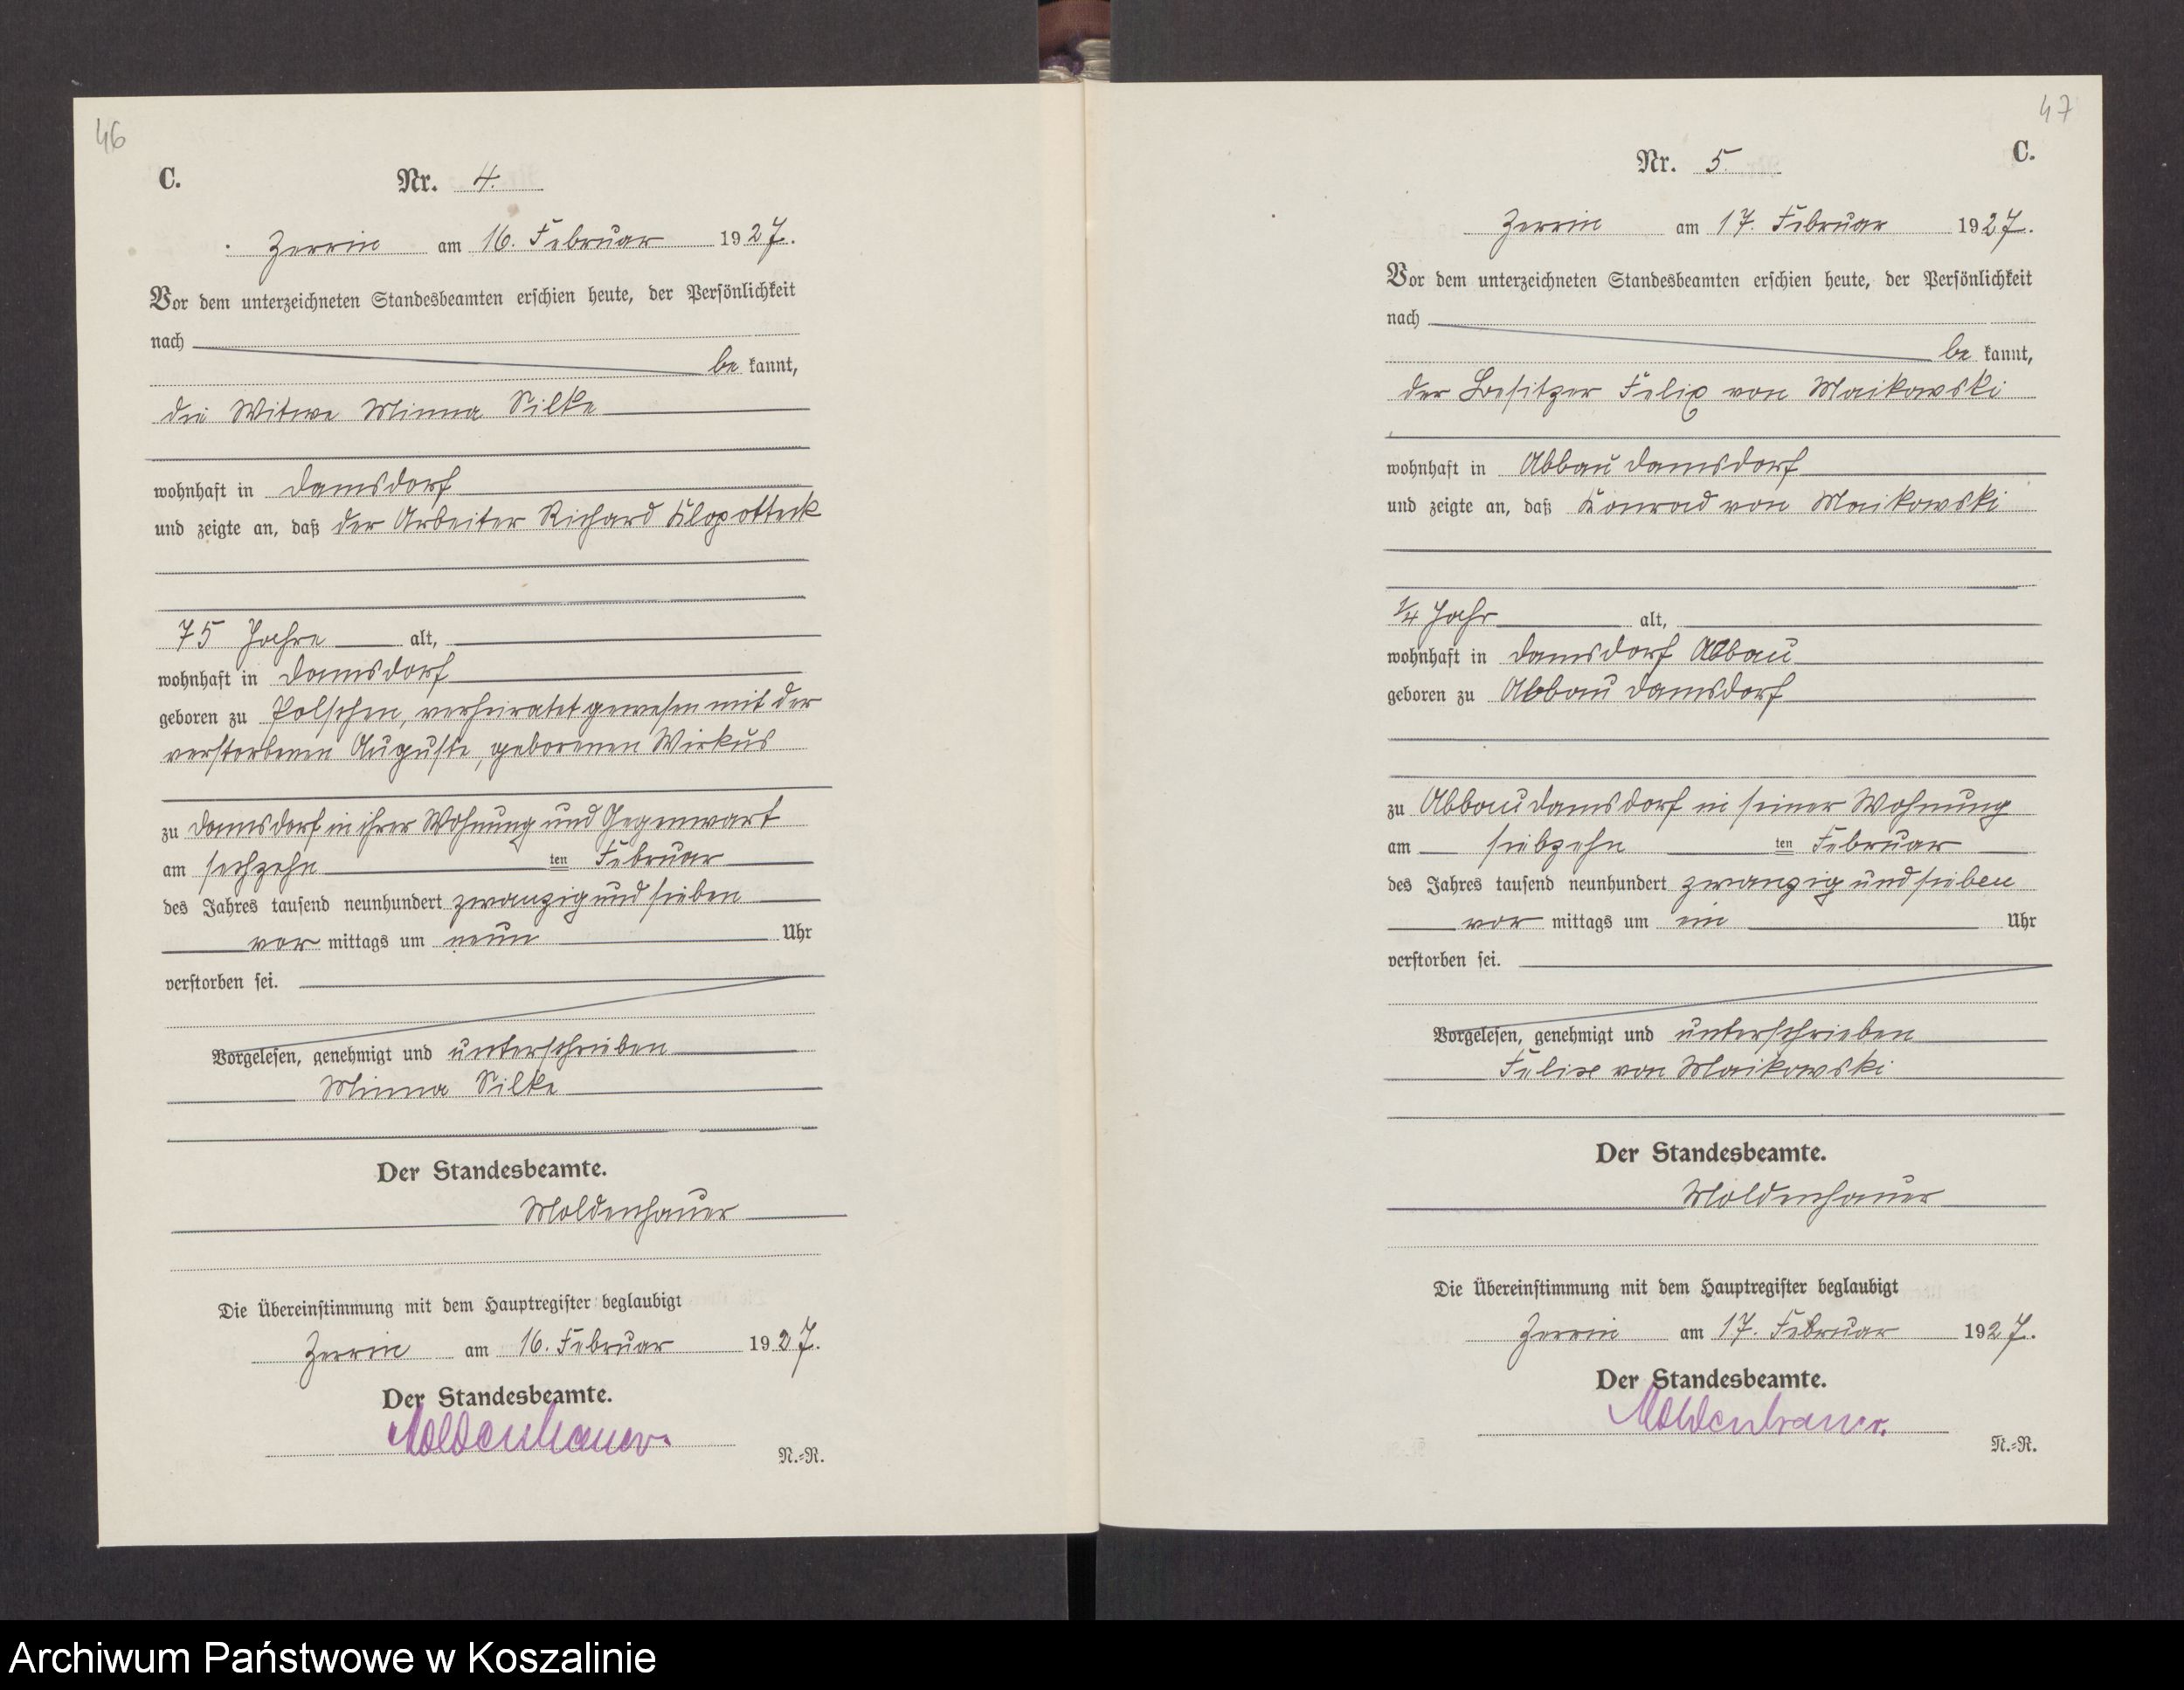 46
C.
Nr. 4.
Zerrin am 16. Februar 1927.
Vor dem unterzeichneten Standesbeamten erschien heute, der Persönlichkeit
nach
be kannt,
die Witwe Minna Silke
wohnhaft in Damsdorf
und zeigte an, daß der Arbeiter Richard Klopotteck
75 Jahre alt,
wohnhaft in Damsdorf
geboren zu Polschen, verheiratet gewesen mit der
verstorbenen Auguste, geborenen Wirkus
zu Damsdorf in ihrer Wohnung und Gegenwart
am sechzehn ten Februar
des Jahres tausend neunhundert zwanzig und sieben
vor mittags um neun Uhr
verstorben sei.
Vorgelesen, genehmigt und unterschrieben
Minna Silke
Der Standesbeamte.
Moldenhauer
Die Übereinstimmung mit dem Hauptregister beglaubigt
Zerrin am 16. Februar 1927.
Der Standesbeamte.
Moldenhauer.
N.=R.
47
C.
Nr. 5.
Zerrin am 17. Februar 1927.
Vor dem unterzeichneten Standesbeamten erschien heute, der Persönlichkeit
nach
be kannt,
der Besitzer Felix von Maikowski
wohnhaft in Abbau Damsdorf
und zeigte an, daß Konrad von Maikowski
1/4 Jahr alt,
wohnhaft in Damsdorf Abbau
geboren zu Abbau Damsdorf
zu Abbau Damsdorf in seiner Wohnung
am siebzehn ten Februar
des Jahres tausend neunhundert zwanzig und sieben
vor mittags um ein Uhr
verstorben sei.
Vorgelesen, genehmigt und unterschrieben
Felix von Maikowski
Der Standesbeamte.
Moldenhauer
Die Übereinstimmung mit dem Hauptregister beglaubigt
Zerrin am 17. Februar 1927.
Der Standesbeamte.
Moldenhauer.
N.=R.
Archiwum Państwowe w Koszalinie